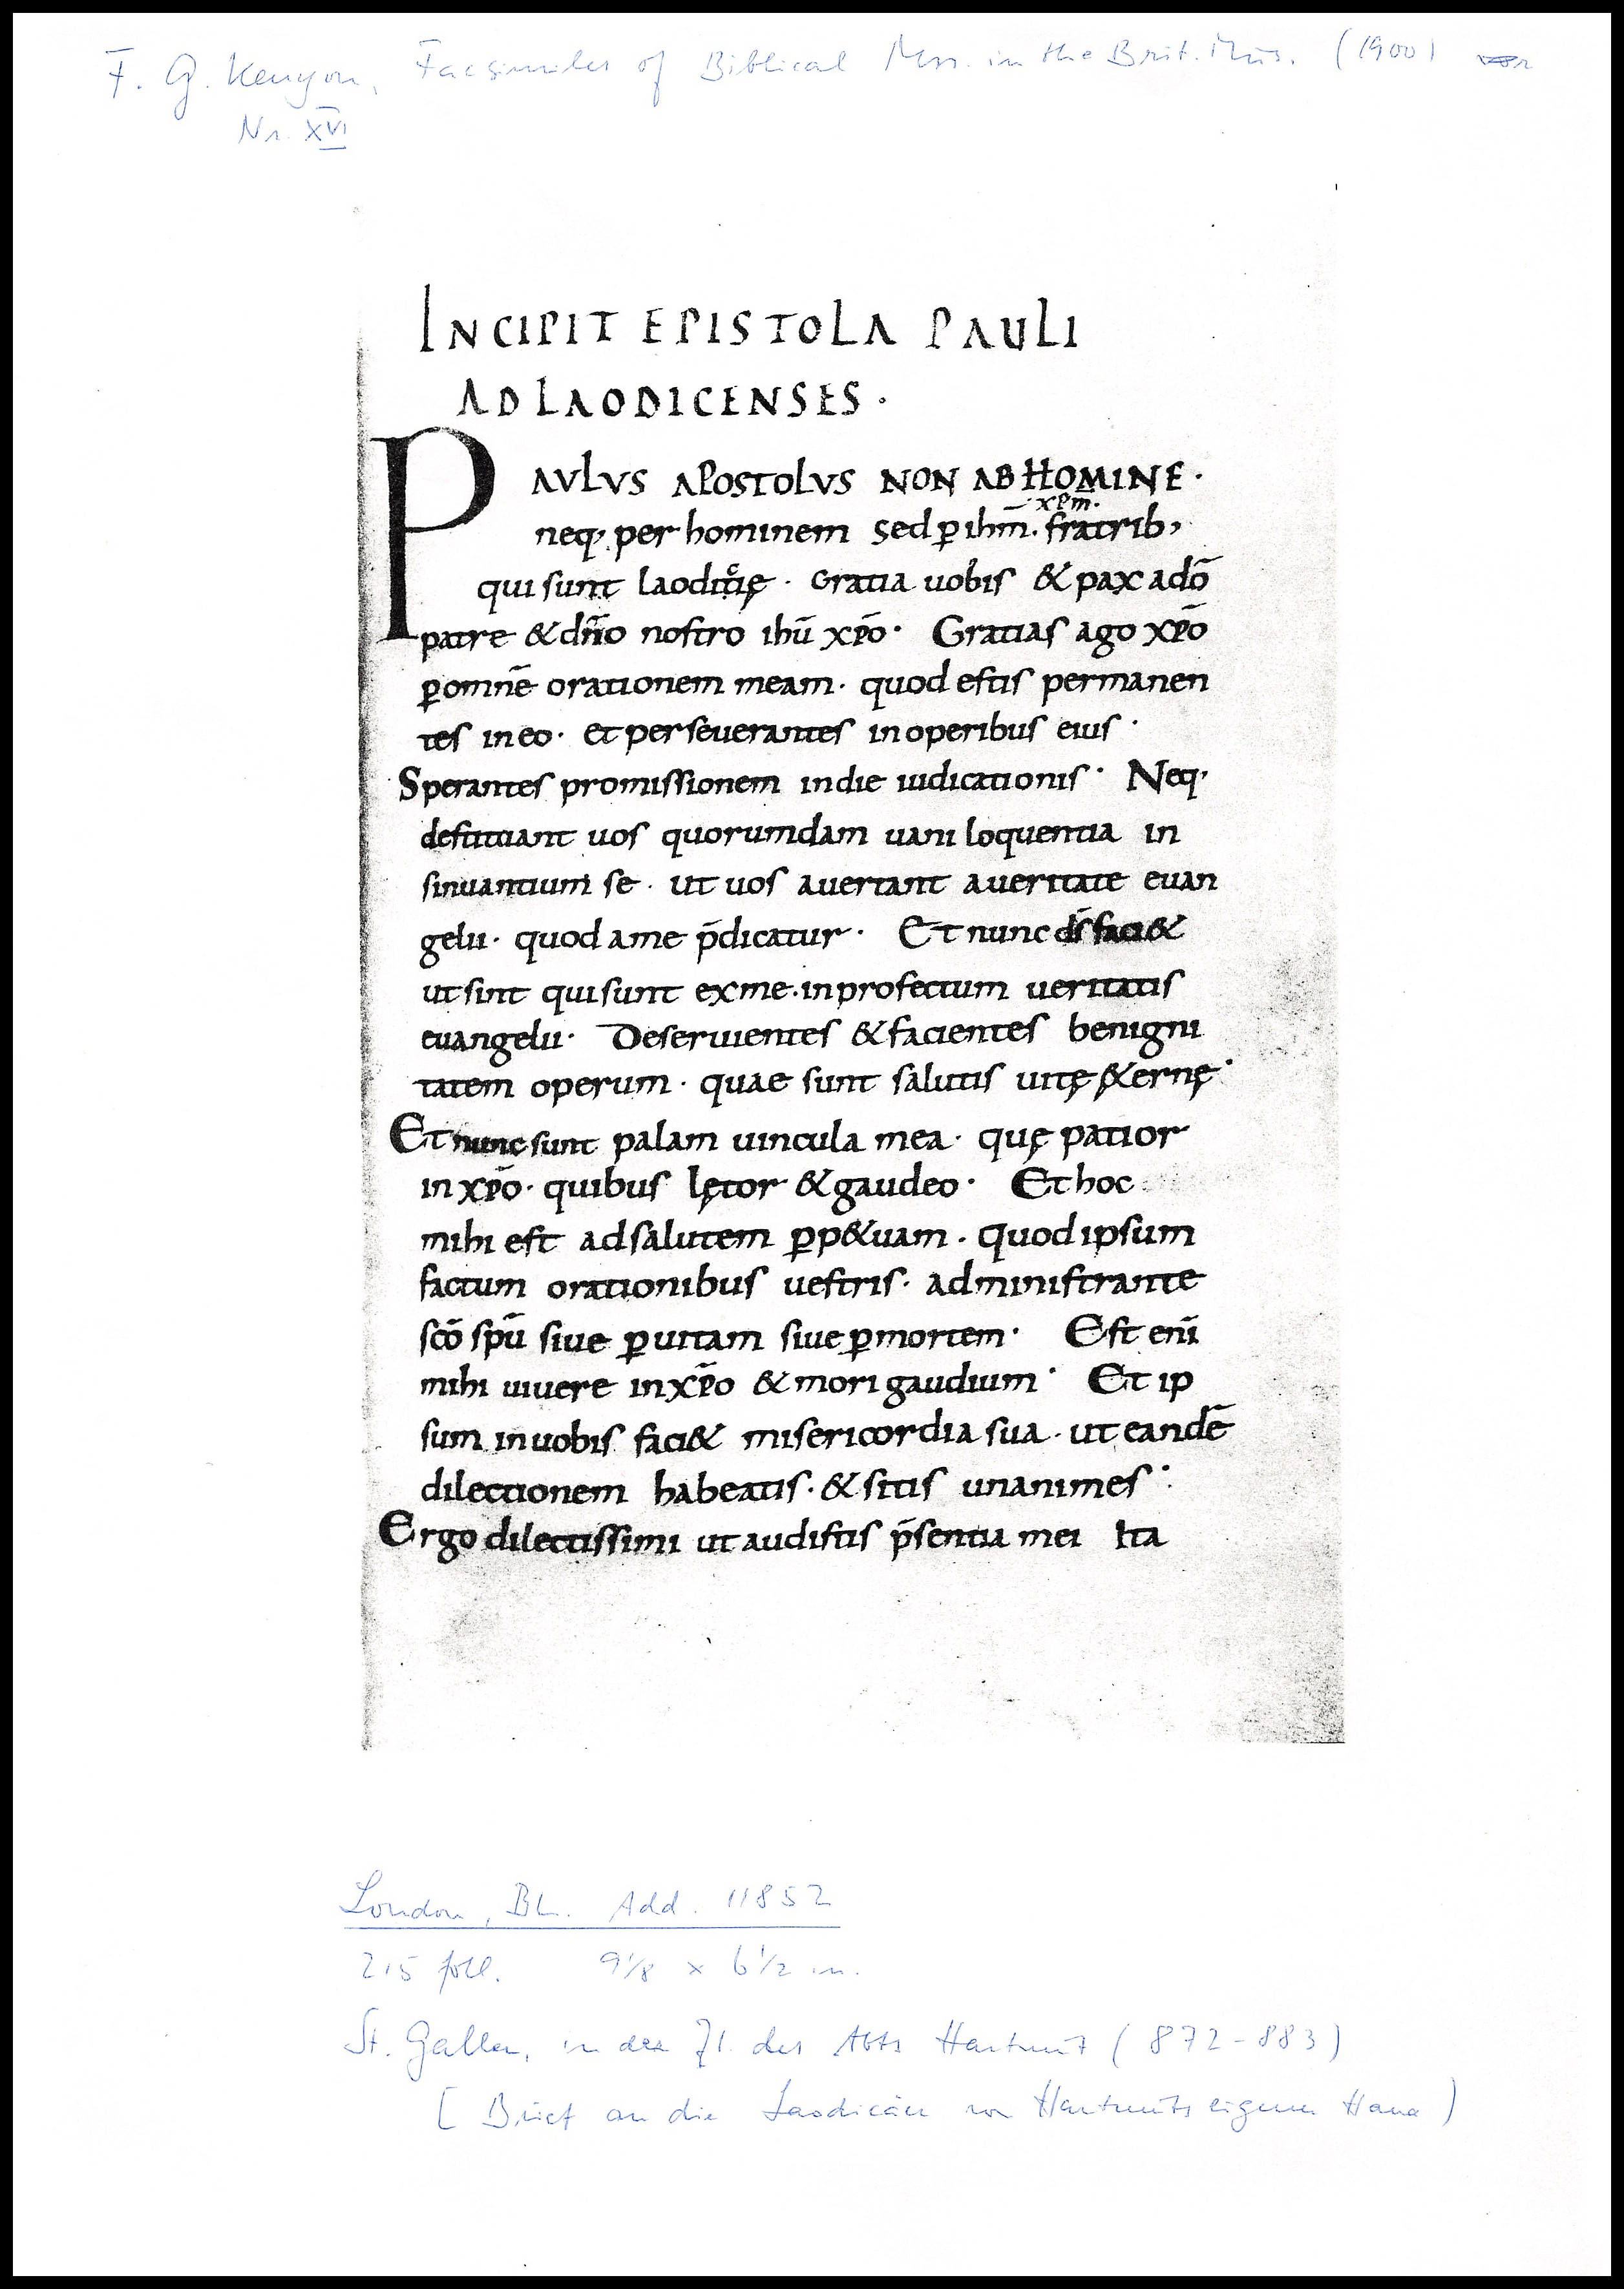 F. G. Kenyon, Facsimiles of Biblical Mss. in the Brit. Mus. (1900)
Nr. XVI
INCIPIT EPISTOLA PAULI
AD LAODICENSES ·
PAULVS APOSTOLVS NON AB HOMINE ·
xp̄m.
neq; per hominem sed ꝑ ihm̄. fratrib;
qui sunt laodicię · Gratia uobis & pax a dō
patre & dn̄o nostro ihū xp̄o · Gratias ago xp̄o
ꝑ omnē orationem meam · quod estis permanen
tes in eo · et perseuerantes in operibus eius ·
Sperantes promissionem in die iudicationis · Neq·
destituant uos quorumdam uaniloquentia in
sinuantium se · ut uos auertant a ueritate euan
gelii · quod a me p̄dicatur · Et nunc d̄s faci&
ut sint qui sunt ex me · in profectum ueritatis
euangelii · Deseruientes & facientes benigni
tatem operum · quae sunt salutis uitę &ernę ·
Et nunc sunt palam uincula mea · quę patior
in xp̄o · quibus lętor & gaudeo · Et hoc
mihi est ad salutem ꝑp&uam · quod ipsum
factum orationibus uestris · administrante
sc̄o sp̄u siue ꝑ uitam siue ꝑ mortem · Est enī
mihi uiuere in xp̄o & mori gaudium · Et ip
sum in uobis faci& misericordia sua · ut eandē
dilectionem habeatis · & sitis unanimes ·
Ergo dilectissimi ut audistis p̄sentia mei Ita
London, BL. Add. 11852
215 foll. 9 1/8 × 6 1/2 in.
St. Gallen, in der Zt. des Abts Hartmut (872-883)
[ Brief an die Laodicäer von Hartmuts eigener Hand )